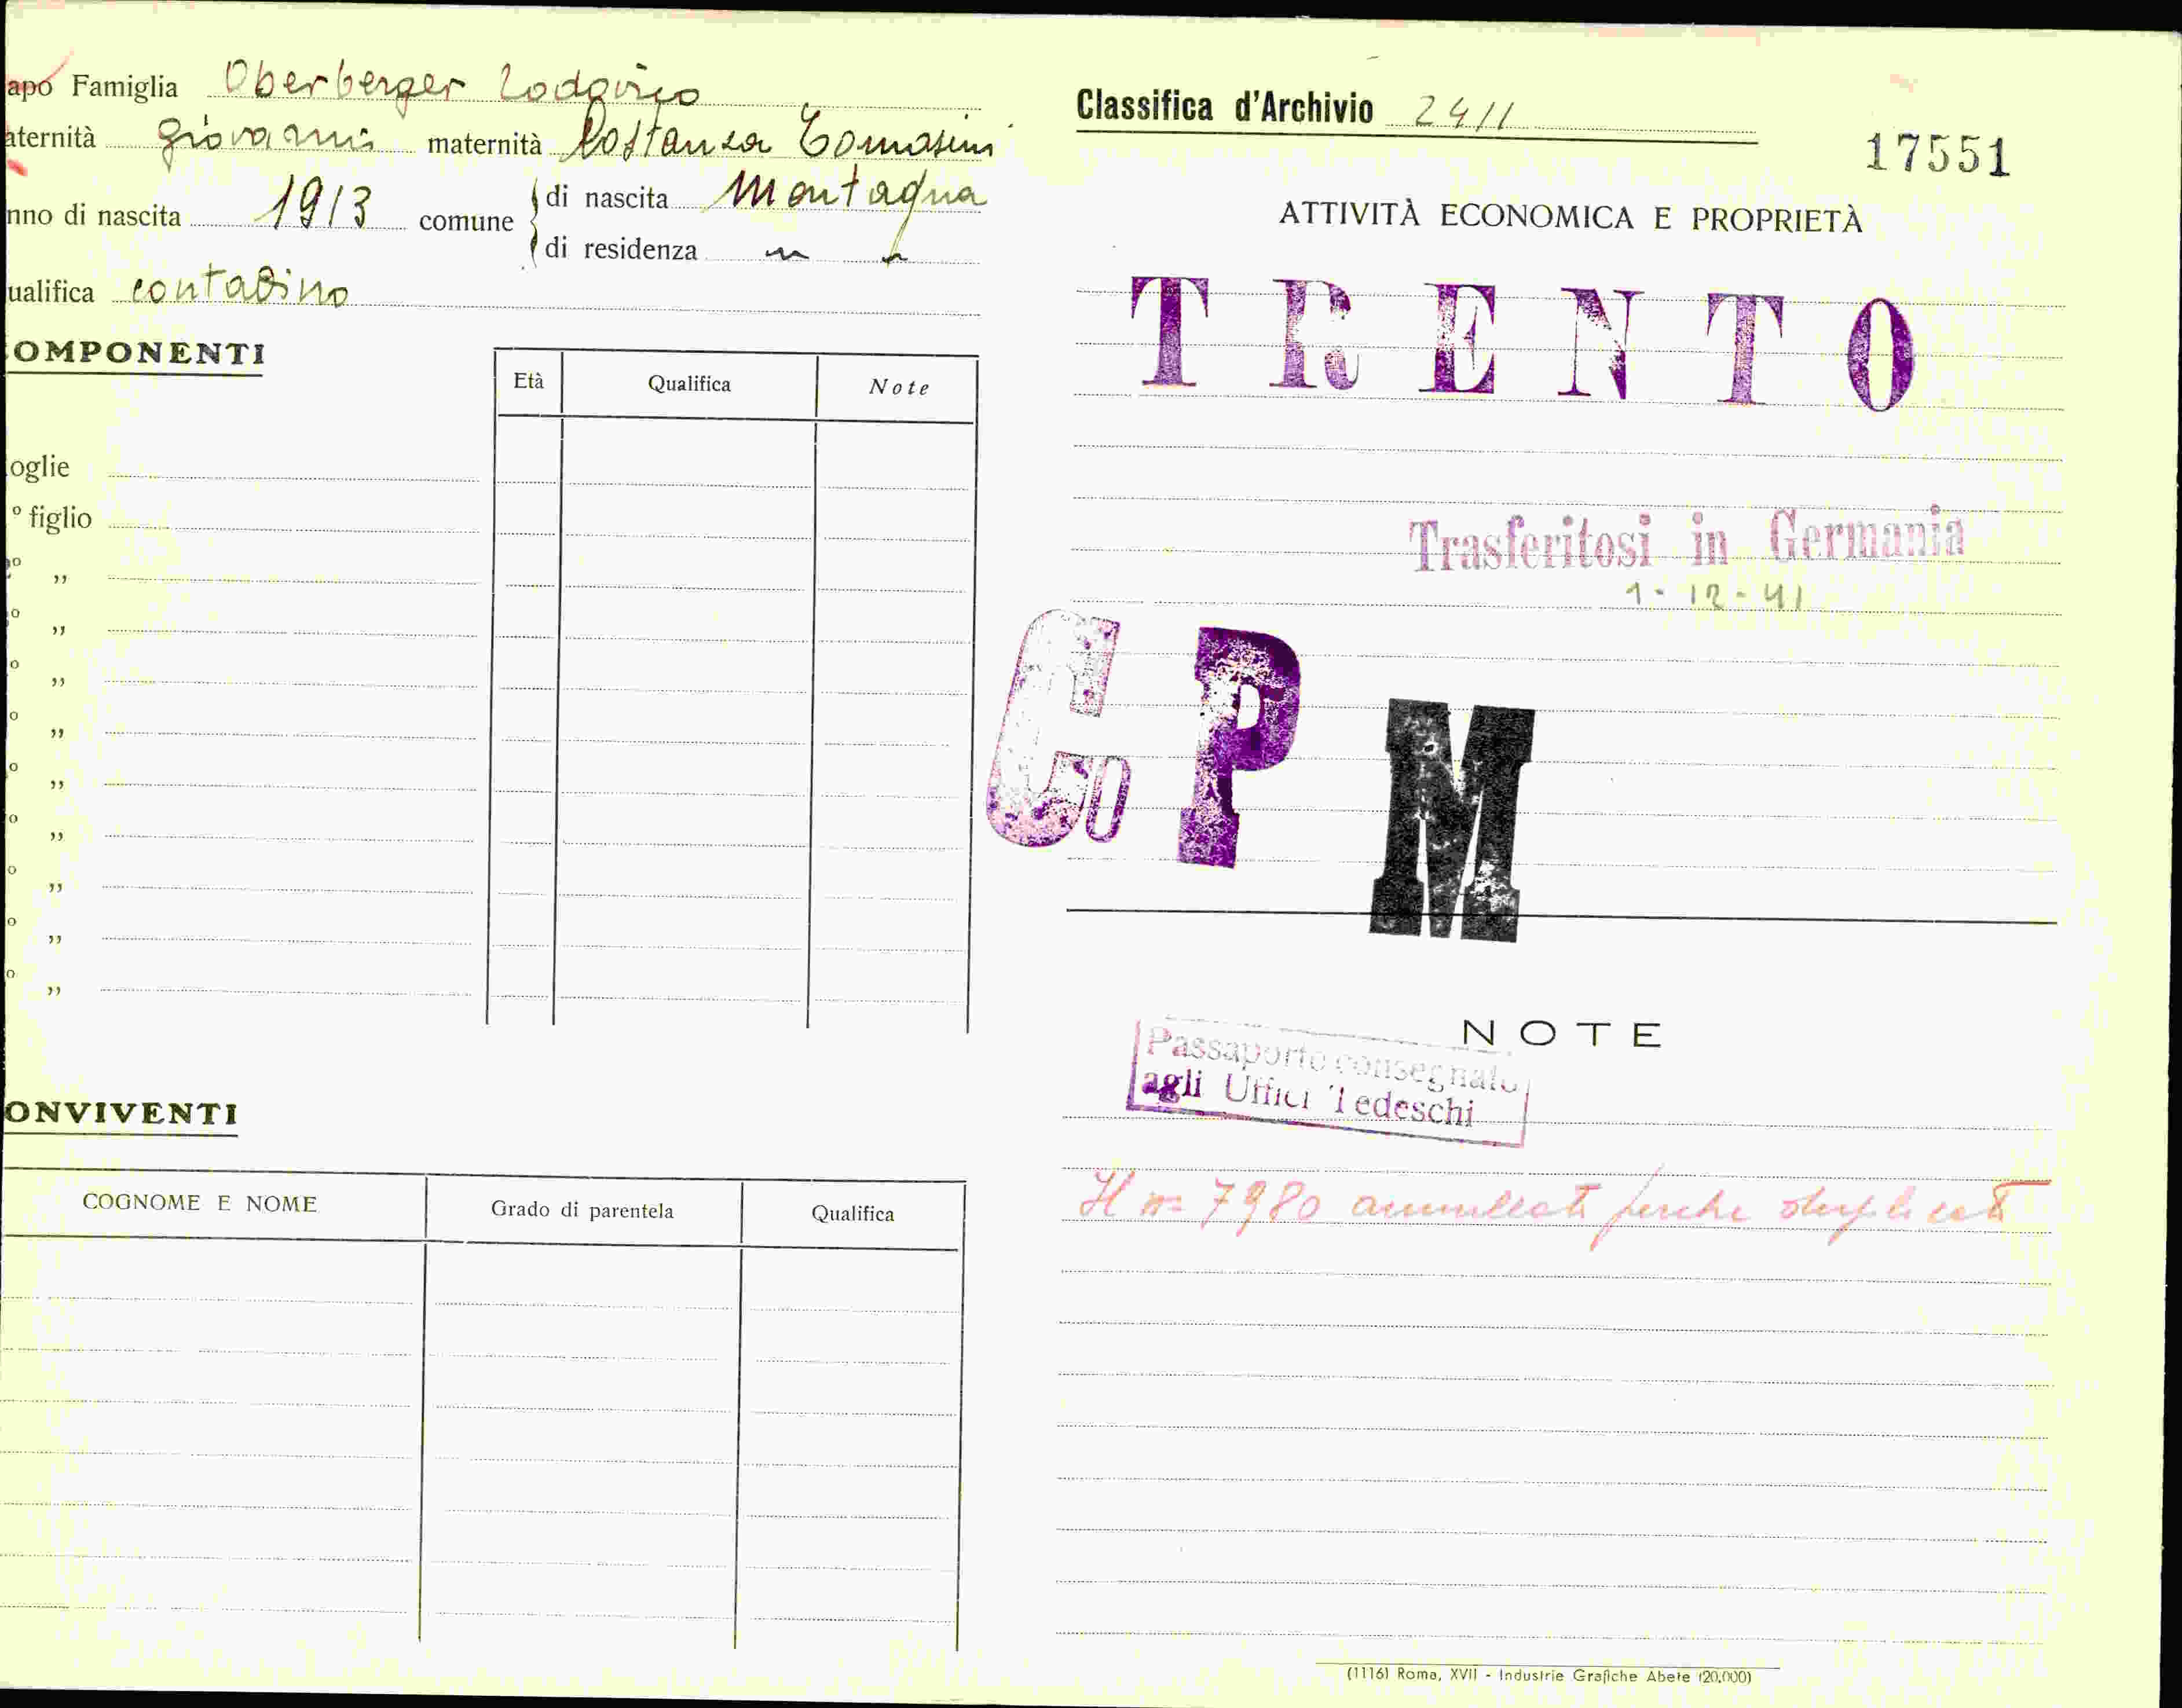 apo Famiglia Oberberger Lodovico
aternità Giovanni maternità Costanza Tomasini
nno di nascita 1913 comune di nascita Montagna
di residenza " "
ualifica contadino
OMPONENTI
Età Qualifica Note
oglie
º figlio
º "
º "
º "
º "
º "
º "
º "
º "
º "
ONVIVENTI
COGNOME E NOME Grado di parentela Qualifica
Classifica d'Archivio 2411
17551
ATTIVITÀ ECONOMICA E PROPRIETÀ
TRENTO
Trasferitosi in Germania
1-12-41
C P M
NOTE
Passaporto consegnato
agli Uffici Tedeschi
Il n= 7980 annullato perché duplicato
(1116) Roma, XVII - Industrie Grafiche Abete (20.000)